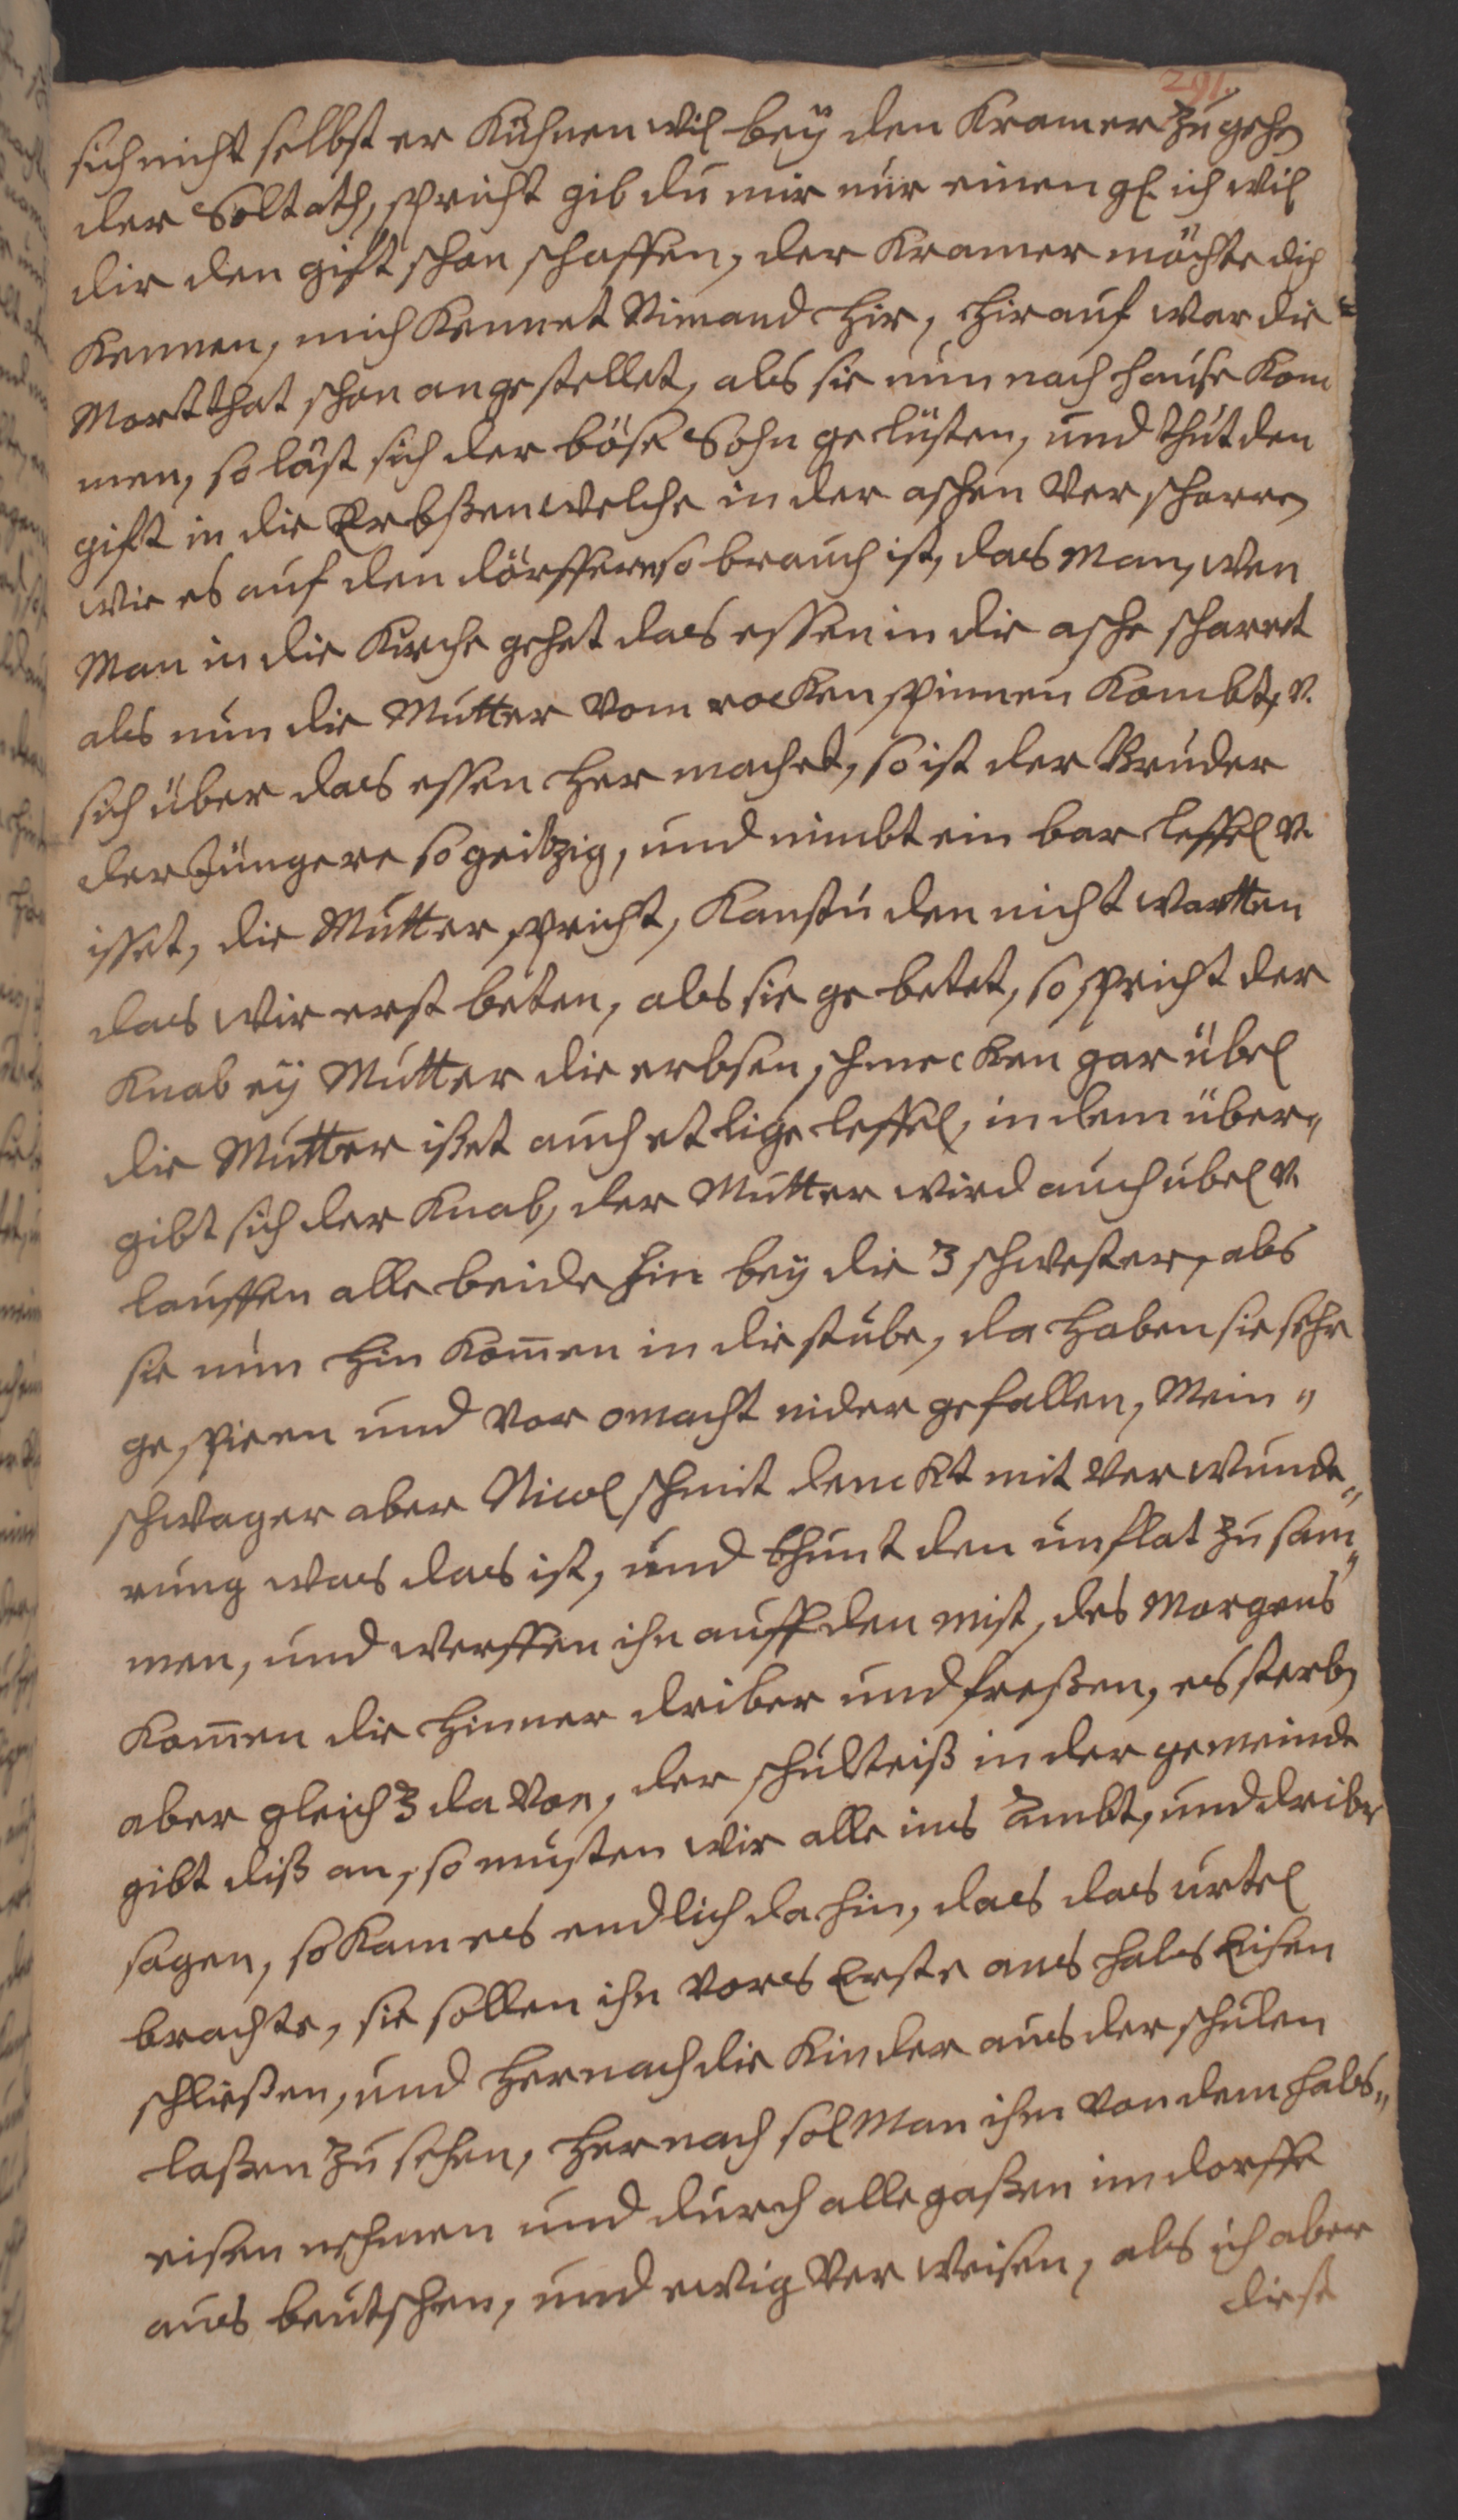 291.
sich nicht selbst er Kühnen wil bey den Kramer zu gehen
der Soltath, spricht gib du mir nur einen gl. ich wil
dir den gift schon schaffen, der Kramer möchte dich
Kennen, mich Kennet Nimand hir, hir auf war die
Mortthat schon angestellet, als sie nun nach hause Kom
men, so läst sich der böse Sohn ge lüsten, und thut den
gift in die Erbßen welche in der aschen Ver scharren
wie es auf den dörffern so brauch ist, das Man, wen
Man in die Kirche gehet das essen in die asche scharret
als nun die Mutter Vom rocken spinnen Kombt, v.
sich über das essen her machet, so ist der Bruder
der Jüngere so geitzig, und nimbt ein bar leffel v.
isset, die Mutter spricht, Kanstu den nicht wartten
das wir erst beten, als sie ge betet, so spricht der
Knab ey Mutter die erbsen schmecken gar übel
die Mutter ißet auch etlige leffel, in dem über„
gibt sich der Knab, der Mutter wird auch übel v.
lauffen alle beide hin bey die 3 schwester, als
sie nun hin Kom̄en in die stube, da haben sie sehr
ge spieen und Vor omacht nider gefallen, Mein„
schwager aber Nicol schmit denckt mit Ver wunde„
rung was das ist, und thunt den unflat zu sam„
men, und werffen ihn auff den mist, des Morgens
Kom̄en die Hinner driber und freßen, es sterben
aber gleich 3 da Von, der schulteiß in der gemeinde
gibt diß an, so musten wir alle ins Ambt, und driber
sagen, so Kam es endlich da hin, das das urtel
brachte, sie sollen ihn Vors Erste ans hals Eisen
schließen, und hernach die Kinder aus der schulen
laßen zu sehen, hernach sol Man ihm von dem hals„
eisen nehmen und durch alle gaßen im dorffe
aus beutschen, und ewig Ver weisen, als ich aber
diese